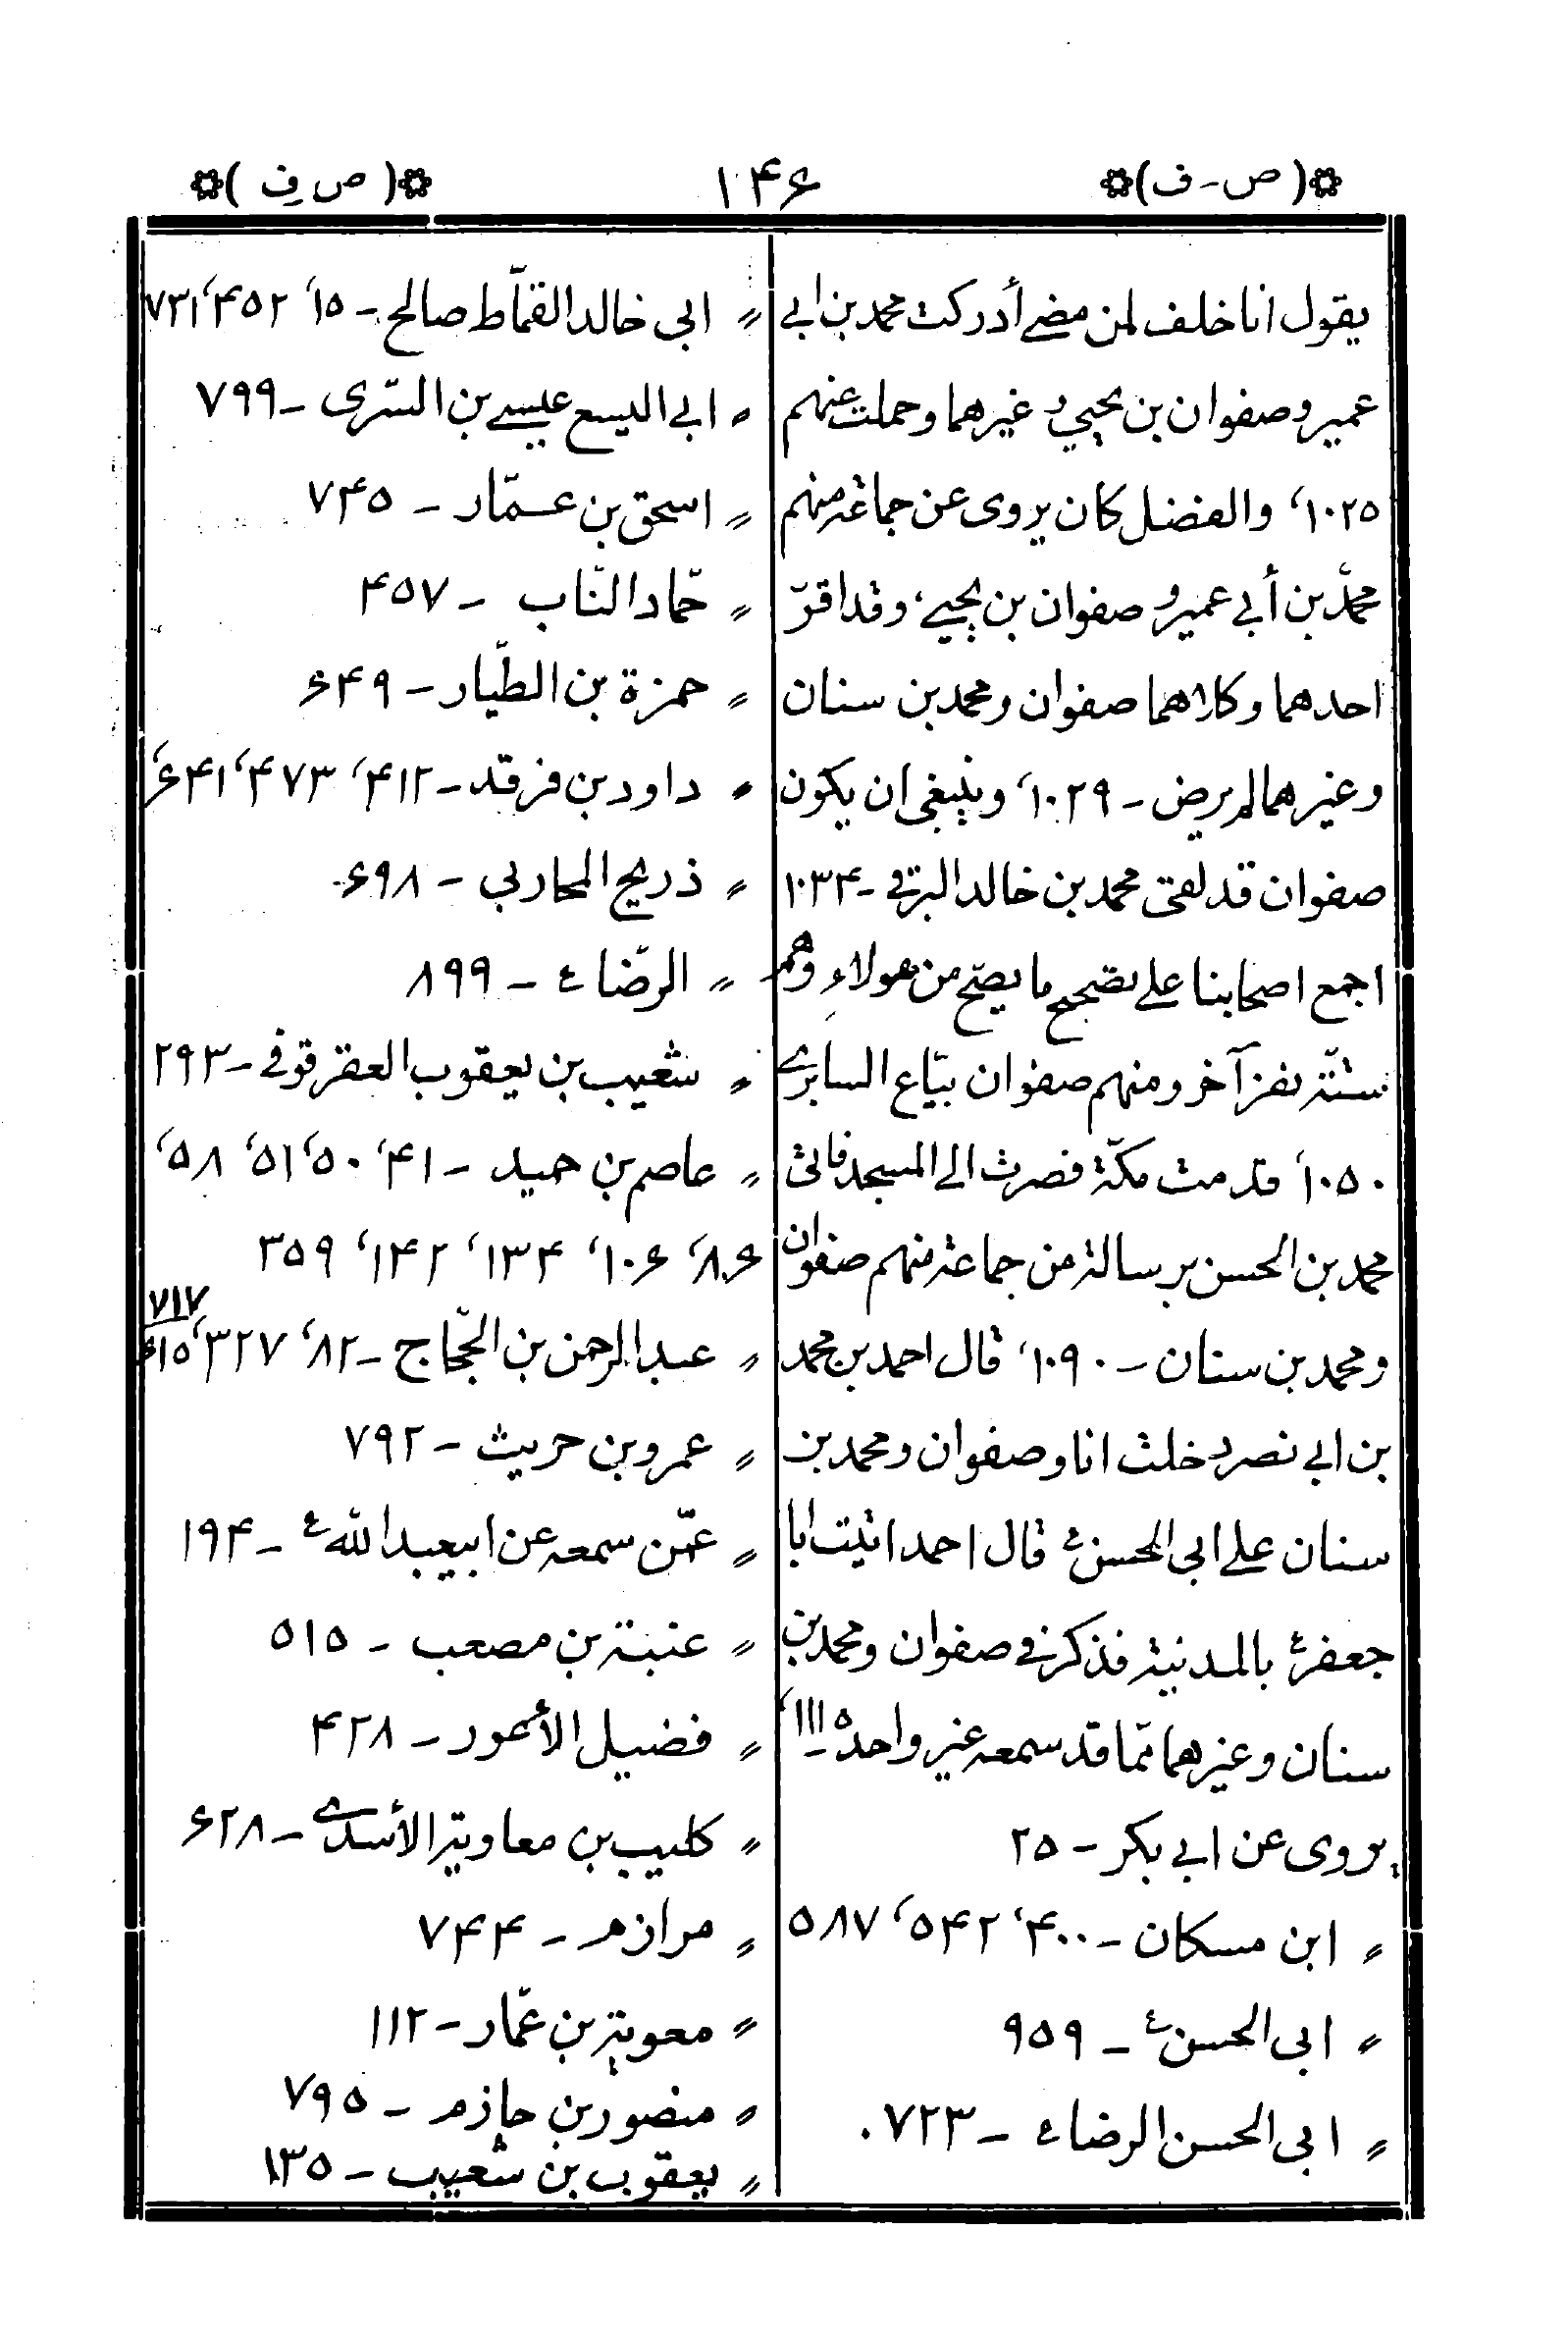 (ص - ف)
۱۴۶
(ص ف)
يقول انا خلف لمن مضى أدركت محمد بن ابي
عمير و صفوان بن يحيي و غيرهما و حملت عنهم
۱۰۲۵، والفضل كان يروى عن جماعة منهم
محمّد بن أبي عمير و صفوان بن يحيي، و قد اقرّ
احدهما و كلاهما صفوان و محمد بن سنان
و غيرهما لم يرض - ۱۰۲۹، و ينبغى ان يكون
صفوان قد لقى محمد بن خالد البرقى - ۱۰۳۴
اجمع اصحابنا على تصحيح ما يصحّ من هولاء و هم
ستّة نفر آخر و منهم صفوان بيّاع السابرى
۱۰۵۰، قدمت مكّة فصرت الى المسجد فاتى
محمد بن الحسن برسالة من جماعة منهم صفوان
و محمد بن سنان - ۱۰۹۰، قال احمد بن محمد
بن ابي نصر دخلت انا و صفوان و محمد بن
سنان على ابى الحسن ع قال احمد اتيت ابا
جعفر ع بالمدينة فذكر فى صفوان و محمد بن
سنان و غيرهما ممّا قد سمعه غير واحد - ۱۱۱۵،
يروى عن ابي بكر - ۲۵
〃 ابن مسكان - ۴۰۰، ۵۴۲، ۵۸۷
〃 ابى الحسن ع - ۹۵۹
〃 ابى الحسن الرضا ع - ۷۲۳
〃 ابى خالد القمّاط صالح - ۱۵، ۴۵۲، ۷۳۱
〃 ابي اليسع عيسى بن السّرى - ۷۹۹
〃 اسحق بن عمّار - ۷۴۵
〃 حمّاد النّاب - ۴۵۷
〃 حمزة بن الطّيار - ۶۴۹
〃 داود بن فرقد - ۴۱۲، ۴۷۳، ۶۴۱،
〃 ذريح المحاربى - ۶۹۸
〃 الرضّا ع - ۸۹۹
〃 شعيب بن يعقوب العقرقوفى - ۲۹۳
〃 عاصم بن حميد - ۴۱، ۵۰، ۵۱، ۵۸،
۸۶، ۱۰۶، ۱۳۴، ۱۴۲، ۳۵۹
〃 عبد الرحمن بن الحجّاج - ۸۲، ۳۲۷، ۶۱۵
۷۱۷
〃 عمرو بن حريث - ۷۹۲
〃 عمّن سمعه عن ابيعبد الله ع - ۱۹۴
〃 عنبسة بن مصعب - ۵۱۵
〃 فضيل الأعور - ۴۲۸
〃 كليب بن معاوية الأسدى - ۶۲۸
〃 مرازم - ۷۴۴
〃 معوية بن عمّار - ۱۱۲
〃 منصور بن حازم - ۷۹۵
〃 يعقوب بن شعيب - ۱۳۵